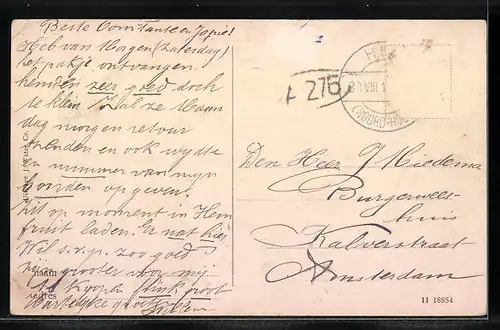 Beste Constant en Jopie!
Heb van Morgen (Zaterdag)
het pakje ontvangen
henden zeer goed doch
te klein Zal ze Maan
dag morgen retour
zenden en ook wydte
en nummer van myn
boorden opgeven.
Lig op moment in Hem
fruit laden. Er nat hier
Wil s.v.p. zoo goed
zijn grooter voor mij
te koopen flink groot
Hartelyke groeten
Willem
A 276
(NOORD-H
Den Heer J Miedema
Burgerwees-
huis
Kalverstraat
Amsterdam
11 18854